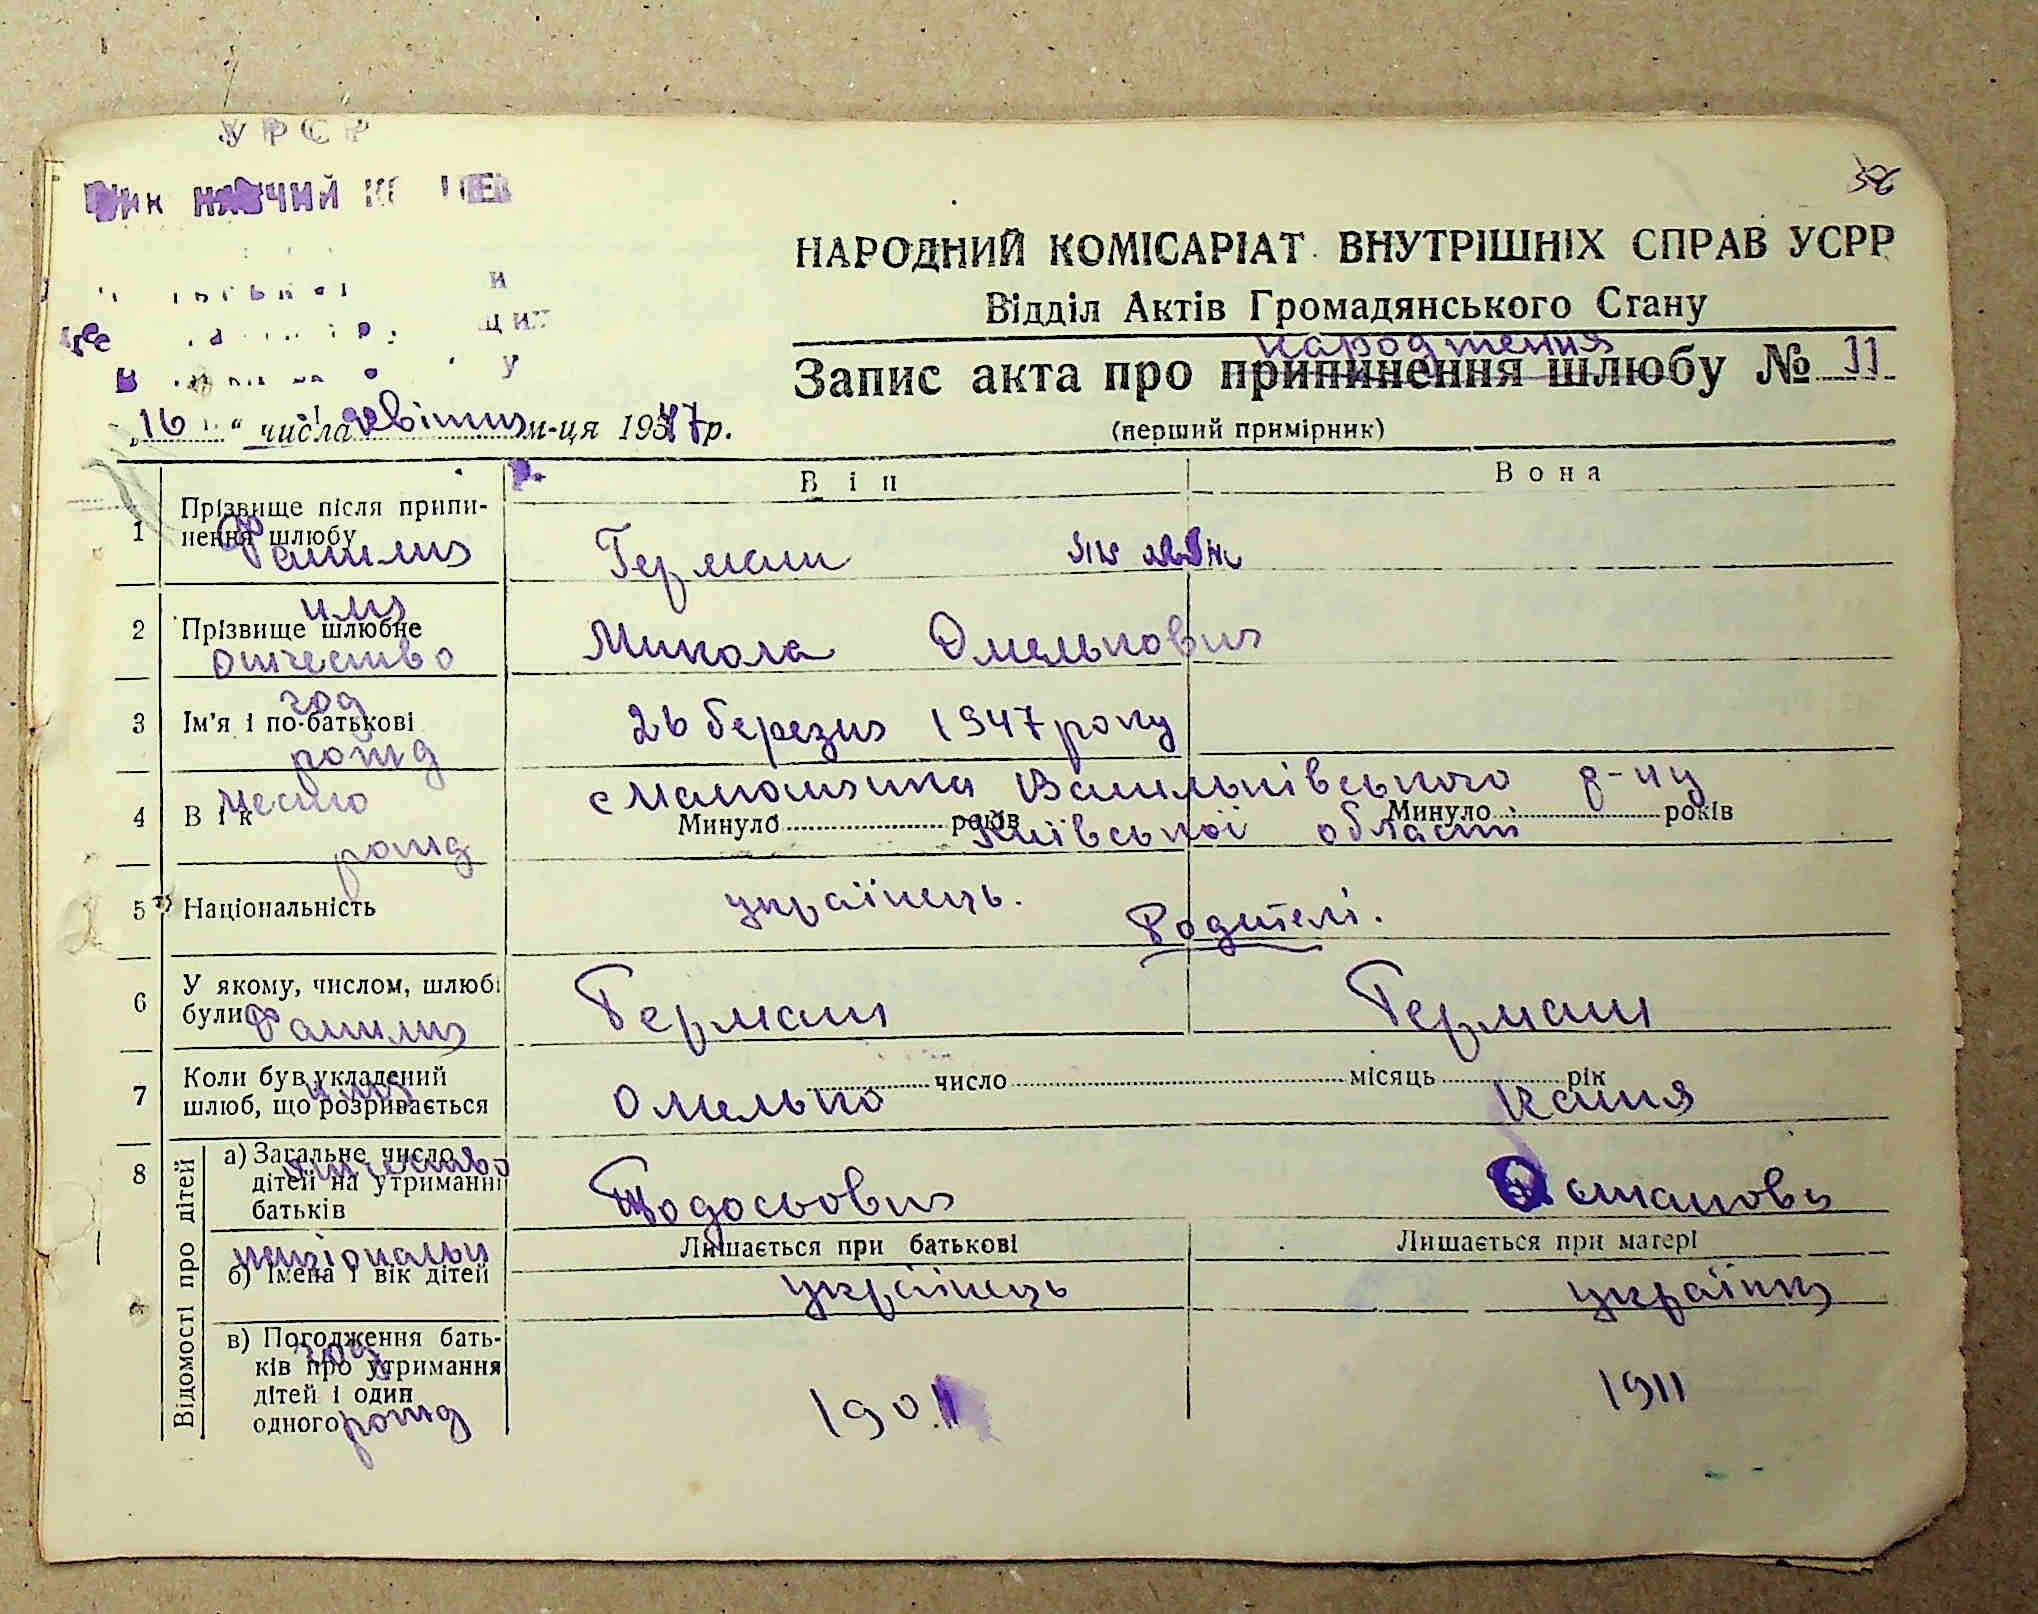 УРСР
НАРОДНИЙ КОМІСАРІАТ ВНУТРІШНІХ СПРАВ УСРР
Відділ Актів Громадянського Стану
народження
Запис акта про припинення шлюбу № 11
(перший примірник)
„16“ числа квітня м-ця 1947 р.
Він Вона
1 Прізвище після припинення шлюбу
Фамилия Герман
2 Прізвище шлюбне
имя
отчество Микола Омелькович
3 Ім'я і по-батькові
год
рожд 26 березня 1947 року
4 Вік
место
рожд
Васильківського р-ну
Минуло років Минуло років
Київської області
5 Національність українець.
Родителі.
6 У якому, числом, шлюбі були
Фамилия Герман Герман
7 Коли був укладений шлюб, що розривається
имя число місяць рік
Омелько Ганна
8 Відомості про дітей
а) Загальне число дітей на утриманні батьків
отчество Тодосьович Остаповн
Лишається при батькові Лишається при матері
національн
б) Імена і вік дітей українець українка
в) Погодження батьків про утримання дітей і один одного
год
рожд 1911